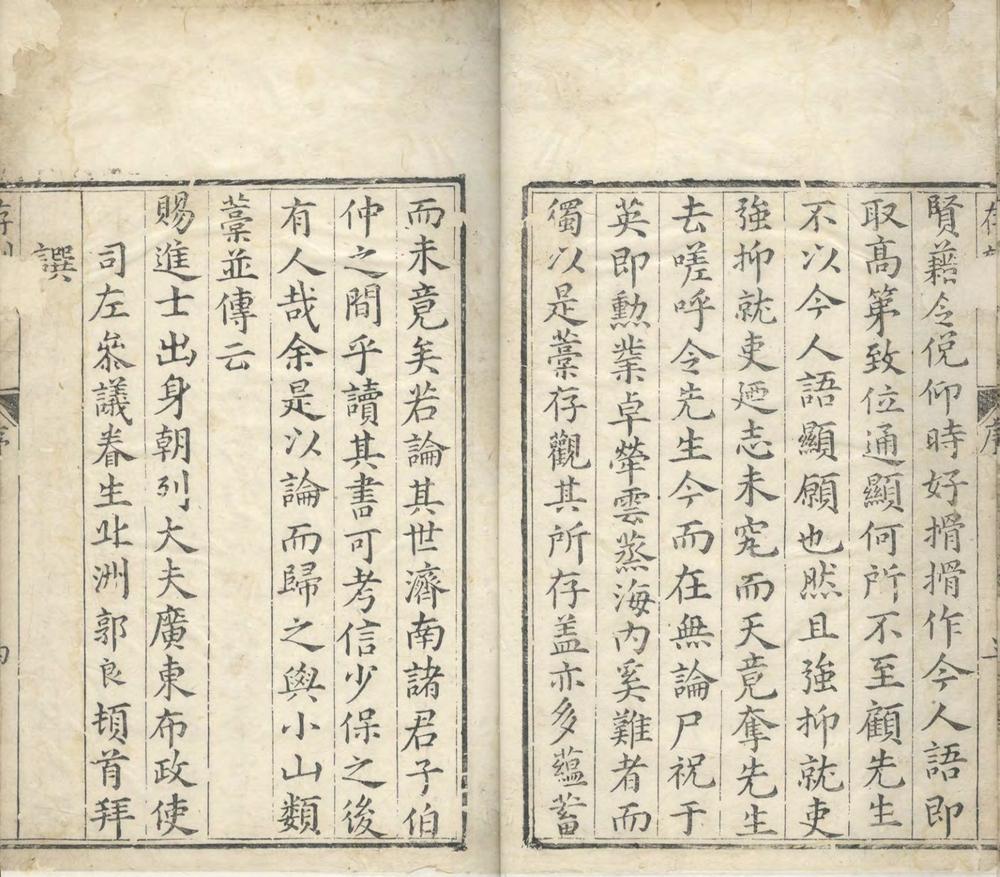 賢藉令俛仰時好搰搰作今人語即
取高第致位通顯何所不至顧先生
不以今人語顯願也然且強抑就吏
強抑就吏廼志未究而天竟奪先生
去嗟呼令先生今而在無論尸祝于
英即勳業卓犖雲蒸海內奚難者而
獨以是藁存觀其所存盖亦多蘊蓄
而未竟矣若論其世濟南諸君子伯
仲之間乎讀其書可考信少保之後
有人哉余是以論而歸之與小山類
藁並傳云
賜進士出身朝列大夫廣東布政使
司左叅議眷生北洲郭良頓首拜
譔